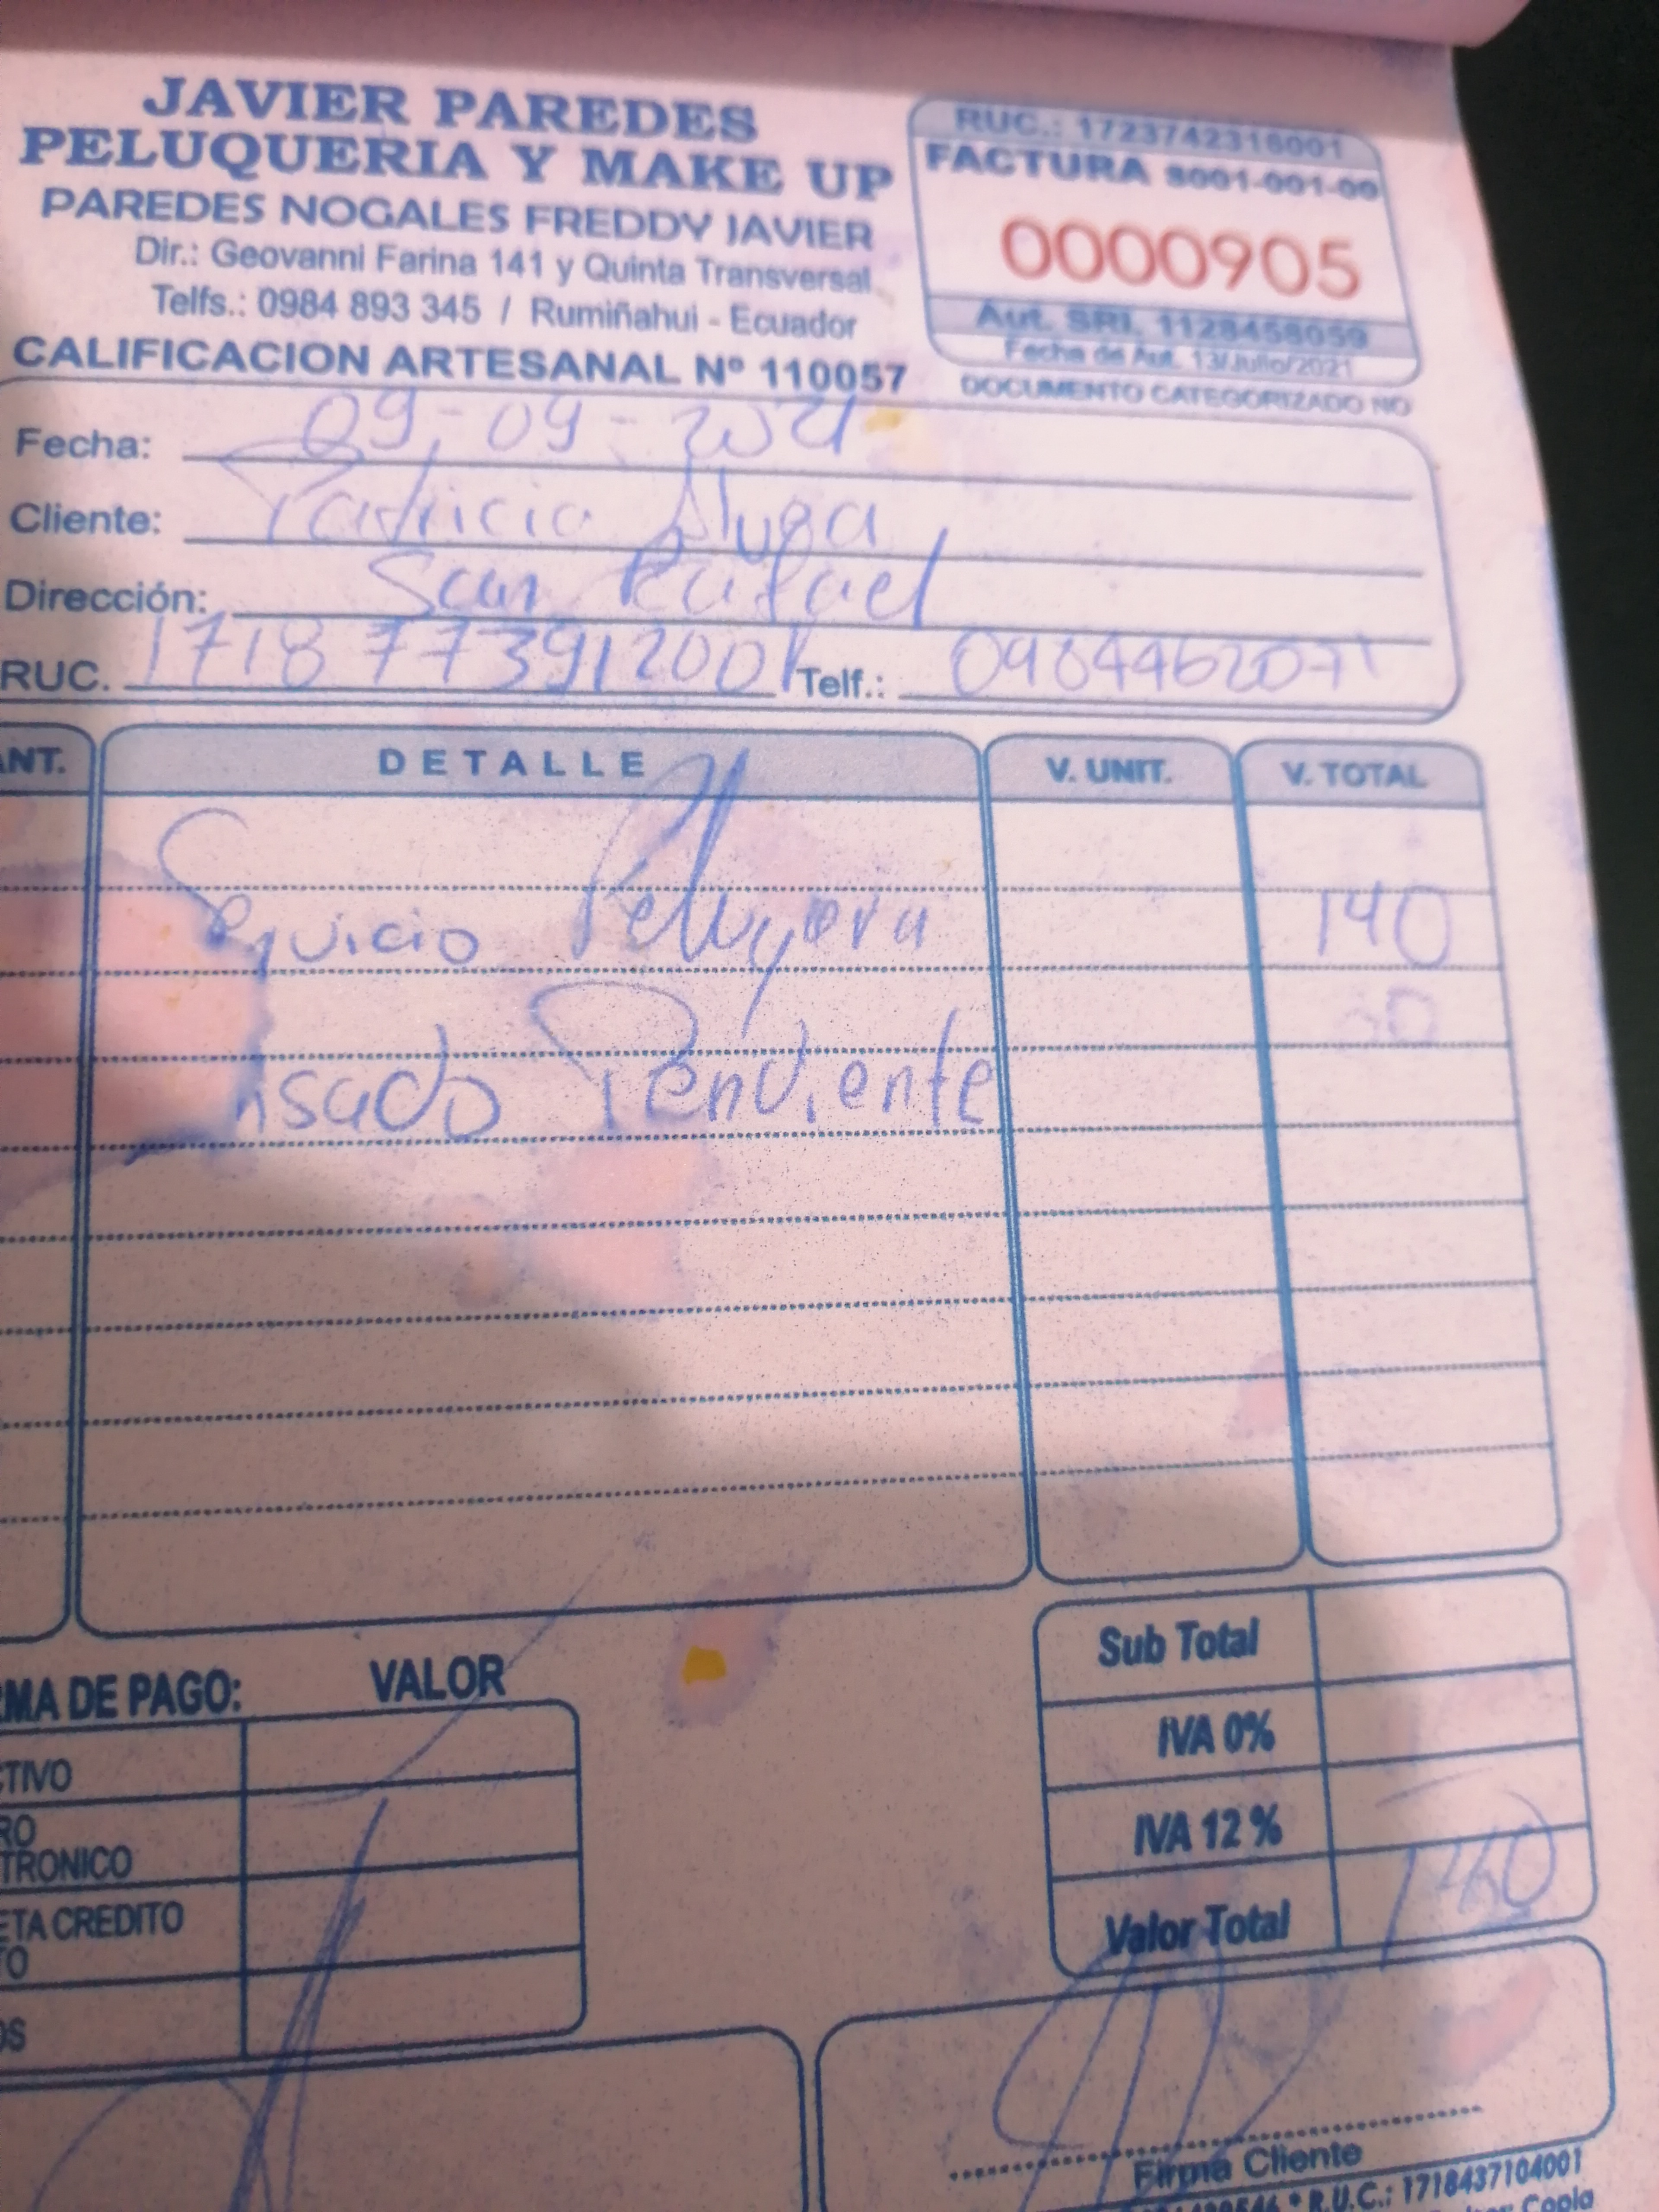 JAVIER PAREDES
PELUQUERIA Y MAKE UP
PAREDES NOGALES FREDDY JAVIER
Dir.: Geovanni Farina 141 y Quinta Transversal
Telfs.: 0984 893 345 / Rumiñahui - Ecuador
CALIFICACION ARTESANAL Nº 110057
RUC.: 1723742316001
FACTURA S001-001-00
0000905
Aut. SRI. 1128458059
Fecha de Aut. 13/Julio/2021
DOCUMENTO CATEGORIZADO NO
Fecha: 09-09-2021
Cliente: Patricia
Dirección: San Rafael
RUC. 1718773912001 Telf.:
ANT. DETALLE V. UNIT. V. TOTAL
140
Pendiente
Sub Total
IVA 0%
IVA 12 %
Valor Total 140
RMA DE PAGO: VALOR
CTIVO
RO
TRONICO
ETA CREDITO
TO
OS
Firma Cliente
R.U.C.: 1718437104001
Copia